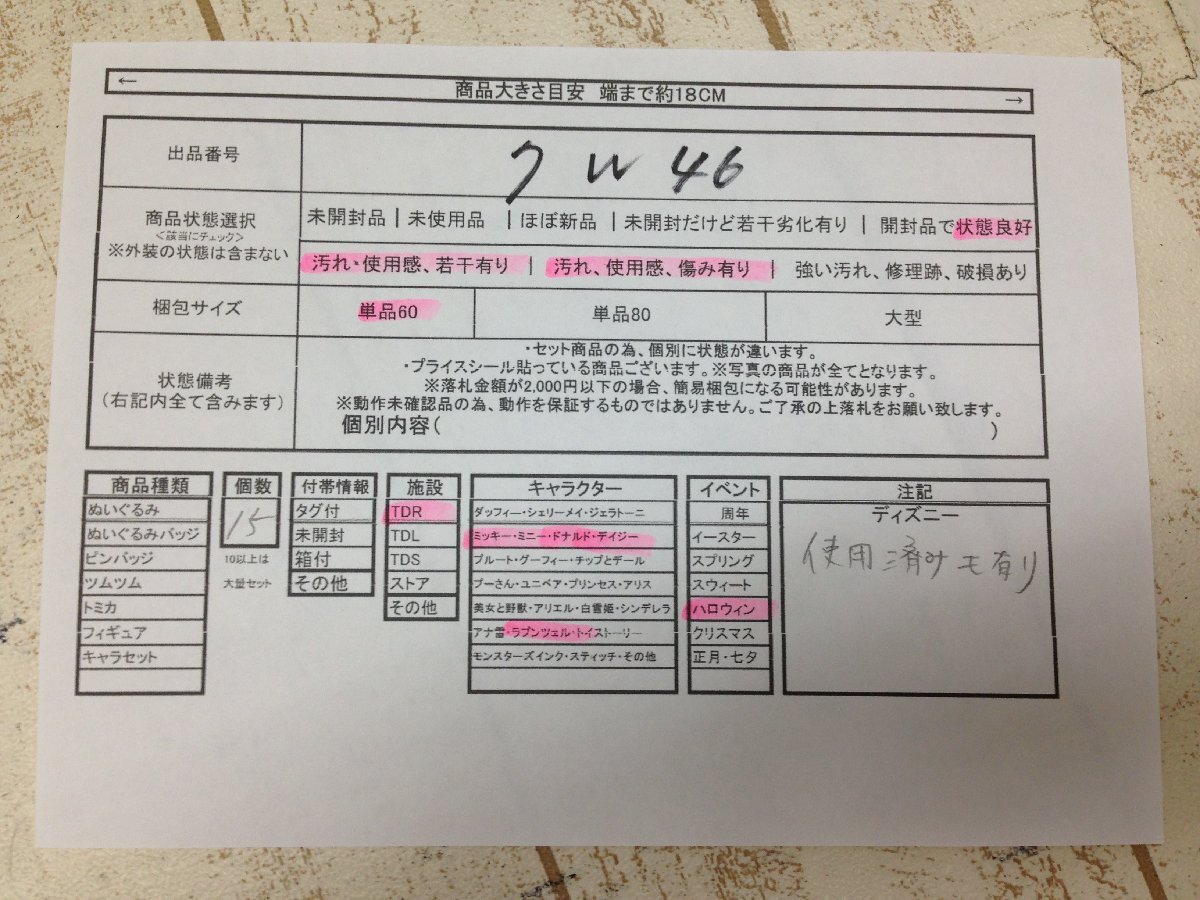 ← 商品大きさ目安 端まで約18CM →
出品番号 7W46
商品状態選択
<該当にチェック>
※外装の状態は含まない
未開封品 | 未使用品 | ほぼ新品 | 未開封だけど若干劣化有り | 開封品で状態良好
汚れ・使用感、若干有り | 汚れ、使用感、傷み有り | 強い汚れ、修理跡、破損あり
梱包サイズ 単品60 単品80 大型
状態備考
(右記内全て含みます)
・セット商品の為、個別に状態が違います。
・プライスシール貼っている商品ございます。※写真の商品が全てとなります。
※落札金額が2,000円以下の場合、簡易梱包になる可能性があります。
※動作未確認品の為、動作を保証するものではありません。ご了承の上落札をお願い致します。
個別内容( )
商品種類
ぬいぐるみ
ぬいぐるみバッジ
ピンバッジ
ツムツム
トミカ
フィギュア
キャラセット
個数
15
10以上は
大量セット
付帯情報
タグ付
未開封
箱付
その他
施設
TDR
TDL
TDS
ストア
その他
キャラクター
ダッフィー・シェリーメイ・ジェラトーニ
ミッキー・ミニー・ドナルド・デイジー
プルート・グーフィー・チップとデール
プーさん・ユニベア・プリンセス・アリス
美女と野獣・アリエル・白雪姫・シンデレラ
アナ雪・ラプンツェル・トイストーリー
モンスターズインク・スティッチ・その他
イベント
周年
イースター
スプリング
スウィート
ハロウィン
クリスマス
正月・七夕
注記
ディズニー
使用済みも有り